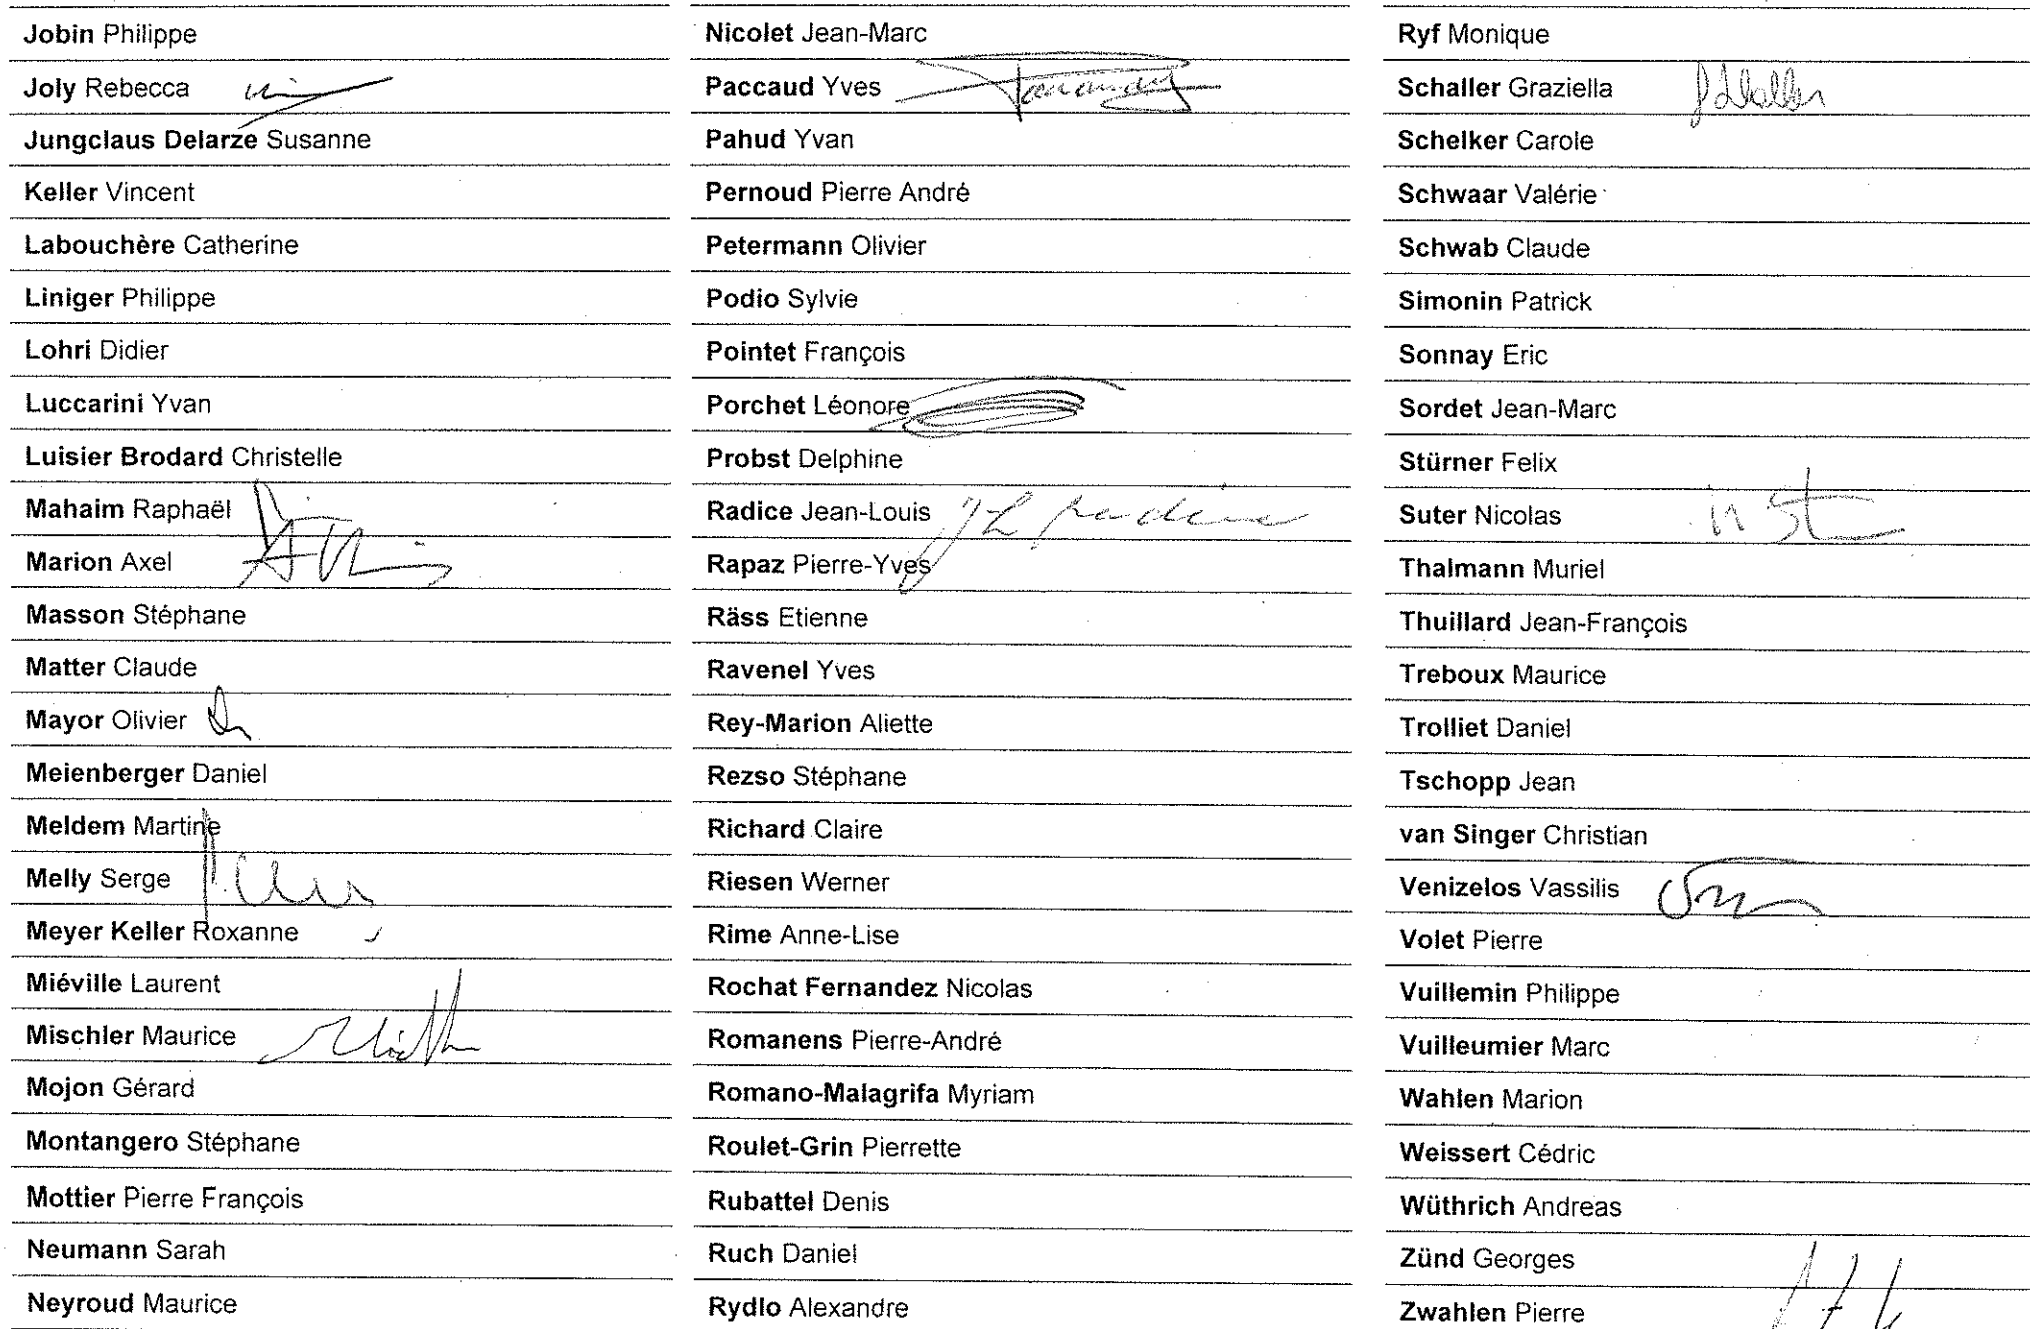 Jobin Philippe
Joly Rebecca
Jungclaus Delarze Susanne
Keller Vincent
Labouchère Catherine
Liniger Philippe
Lohri Didier
Luccarini Yvan
Luisier Brodard Christelle
Mahaim Raphaël
Marion Axel
Masson Stéphane
Matter Claude
Mayor Olivier
Meienberger Daniel
Meldem Martine
Melly Serge
Meyer Keller Roxanne
Miéville Laurent
Mischler Maurice
Mojon Gérard
Montangero Stéphane
Mottier Pierre François
Neumann Sarah
Neyroud Maurice
Nicolet Jean-Marc
Paccaud Yves
Pahud Yvan
Pernoud Pierre André
Petermann Olivier
Podio Sylvie
Pointet François
Porchet Léonore
Probst Delphine
Radice Jean-Louis JL Radice
Rapaz Pierre-Yves
Räss Etienne
Ravenel Yves
Rey-Marion Aliette
Rezso Stéphane
Richard Claire
Riesen Werner
Rime Anne-Lise
Rochat Fernandez Nicolas
Romanens Pierre-André
Romano-Malagrifa Myriam
Roulet-Grin Pierrette
Rubattel Denis
Ruch Daniel
Rydlo Alexandre
Ryf Monique
Schaller Graziella
Schelker Carole
Schwaar Valérie
Schwab Claude
Simonin Patrick
Sonnay Eric
Sordet Jean-Marc
Stürner Felix
Suter Nicolas
Thalmann Muriel
Thuillard Jean-François
Treboux Maurice
Trolliet Daniel
Tschopp Jean
van Singer Christian
Venizelos Vassilis
Volet Pierre
Vuillemin Philippe
Vuilleumier Marc
Wahlen Marion
Weissert Cédric
Wüthrich Andreas
Zünd Georges
Zwahlen Pierre